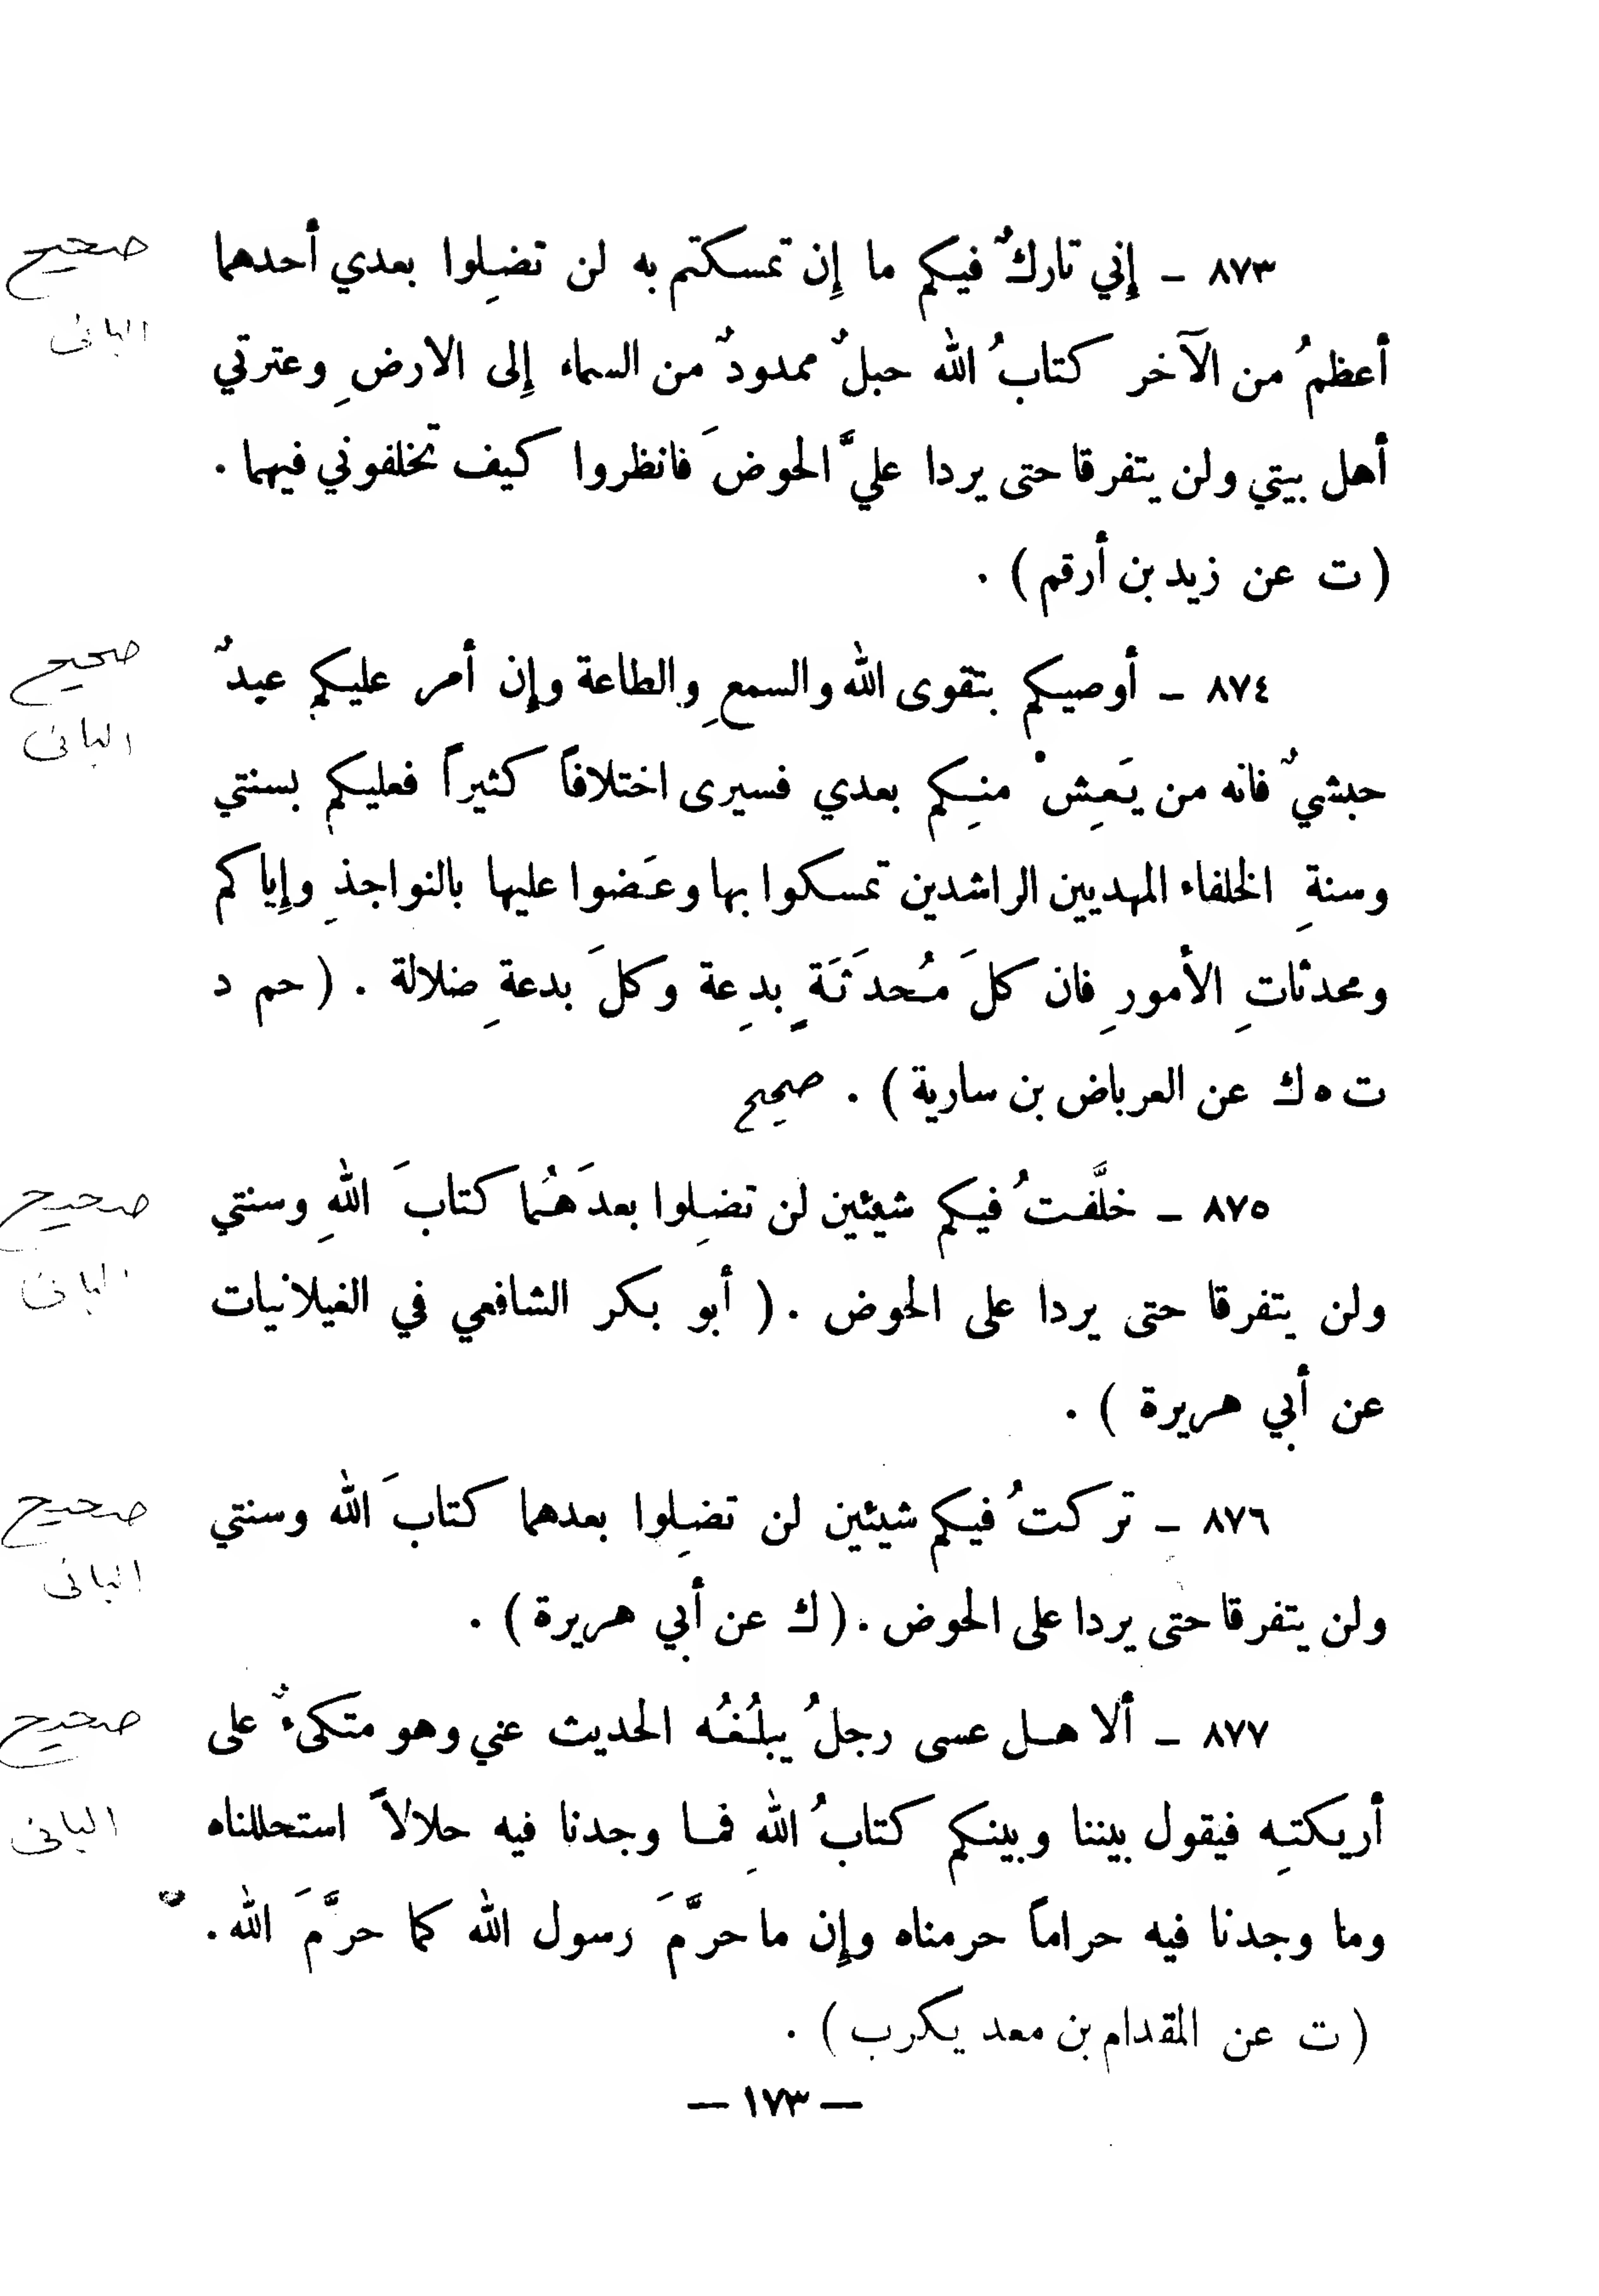 ٨٧٣ ـ إِني تاركٌ فيكم ما إِن تمسكتم به لن تضِلوا بعدي أحدهما
أعظمُ من الآخر كتابُ الله حبلٌ ممدودٌ من السماء إِلى الارضِ وعترتي
أهل بيتي ولن يتفرقا حتى يردا عليَّ الحوضَ فانظروا كيف تخلفوني فيهما .
( ت عن زيد بن أرقم ) .
صحيح
البانى
٨٧٤ ـ أوصيكم بتقوى الله والسمعِ والطاعة وإِن أمر عليكم عبدٌ
حبشيٌ فانه من يَعِشْ منِكم بعدي فسيرى اختلافاً كثيراً فعليكم بسنتي
وسنةِ الخلفاء المهديين الراشدين تمسكوا بها وعَضوا عليها بالنواجذِ وإِياكم
ومحدثاتِ الأمورِ فان كلَ مُحدَثَةٍ بدِعة وكلَ بدعةِ ضلالة . ( حم د
ت ه ك عن العرباض بن سارية ) . صحيح
صحيح
البانى
٨٧٥ ـ خلَّفتُ فيكم شيئين لن تضِلوا بعدَهُما كتابَ اللهِ وسنتي
ولن يتفرقا حتى يردا على الحوض . ( أبو بكر الشافعي في الغيلانيات
عن أبي هريرة ) .
صحيح
البانى
٨٧٦ ـ تركتُ فيكم شيئين لن تضِلوا بعدهما كتابَ الله وسنتي
ولن يتفرقا حتى يردا على الحوض . ( ك عن أبي هريرة ) .
صحيح
البانى
٨٧٧ ـ ألا هل عسى رجلُ يبلُغُه الحديث عني وهو متكىءٌ على
أريكتِه فيقول بيننا وبينكم كتابُ اللهِ فما وجدنا فيه حلالاً استحللناه
وما وجدنا فيه حراماً حرمناه وإِن ما حرَّمَ رسول الله كما حرَّمَ الله .
( ت عن المقدام بن معد يكرب ) .
صحيح
البانى
— ١٧٣ —